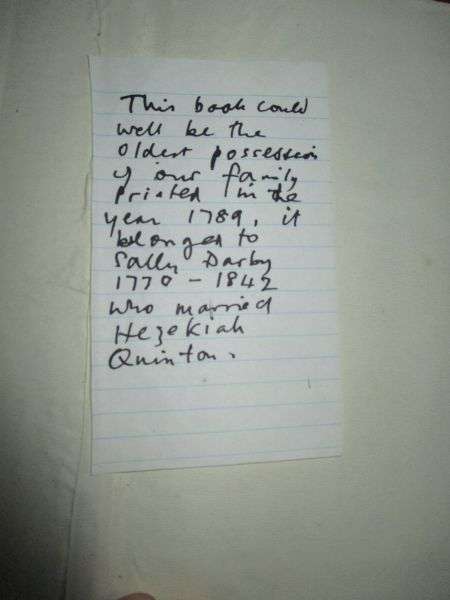 This book could
well be the
oldest possession
of our family
Printed in the
year 1789, it
belonged to
Sally Darby
1770 - 1842
who married
Hezekiah
Quinton.